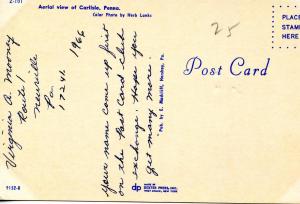 Z-191
Aerial view of Carlisle, Penna.
Color Photo by Herb Lanks
25
PLACE
STAMP
HERE
Post Card
Virginia A. Mooney
Route 1
Newville
Pa.
17241
1966
Your name come up first
on the Post Card club
exchange. Hope you
get many more.
Pub. by E. Hershey, Pa.
9152-B
dp
MADE BY
DEXTER PRESS, INC.
WEST NYACK, NEW YORK